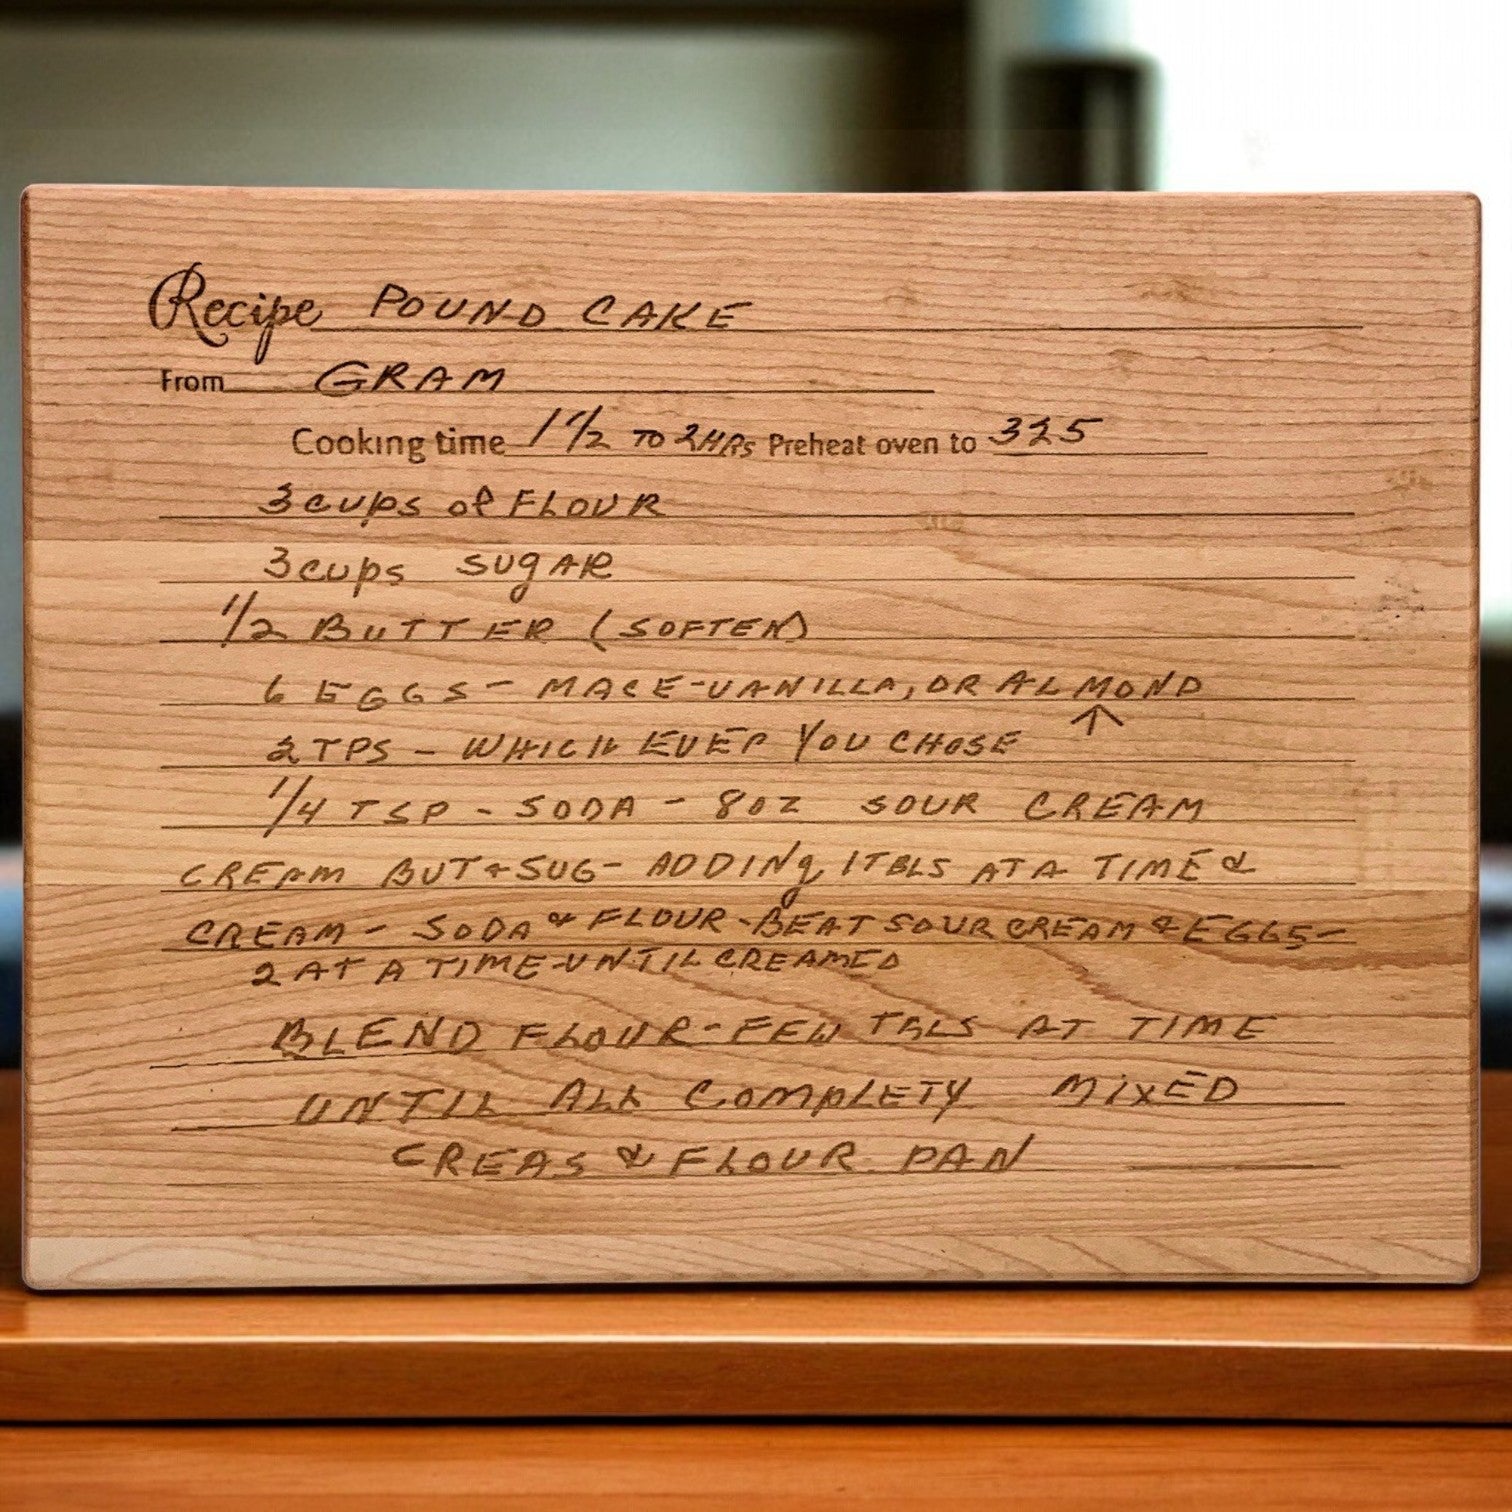 Recipe POUND CAKE
From GRAM
Cooking time 1 1/2 TO 2 HRS Preheat oven to 325
3 cups of FLOUR
3 cups SUGAR
1/2 BUTTER (SOFTEN)
6 EGGS - MACE-VANILLA, OR ALMOND
↑
2 TPS - WHICH EVER YOU CHOSE
1/4 TSP - SODA - 8 OZ SOUR CREAM
CREAM BUT & SUG - ADDING 1 TBLS AT A TIME &
CREAM - SODA & FLOUR - BEAT SOUR CREAM & EGGS -
2 AT A TIME - UNTIL CREAMED
BLEND FLOUR - FEW TBLS AT TIME
UNTIL ALL COMPLETY MIXED
CREAS & FLOUR PAN